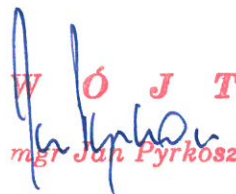 W Ó J T
mgr Jan Pyrkosz